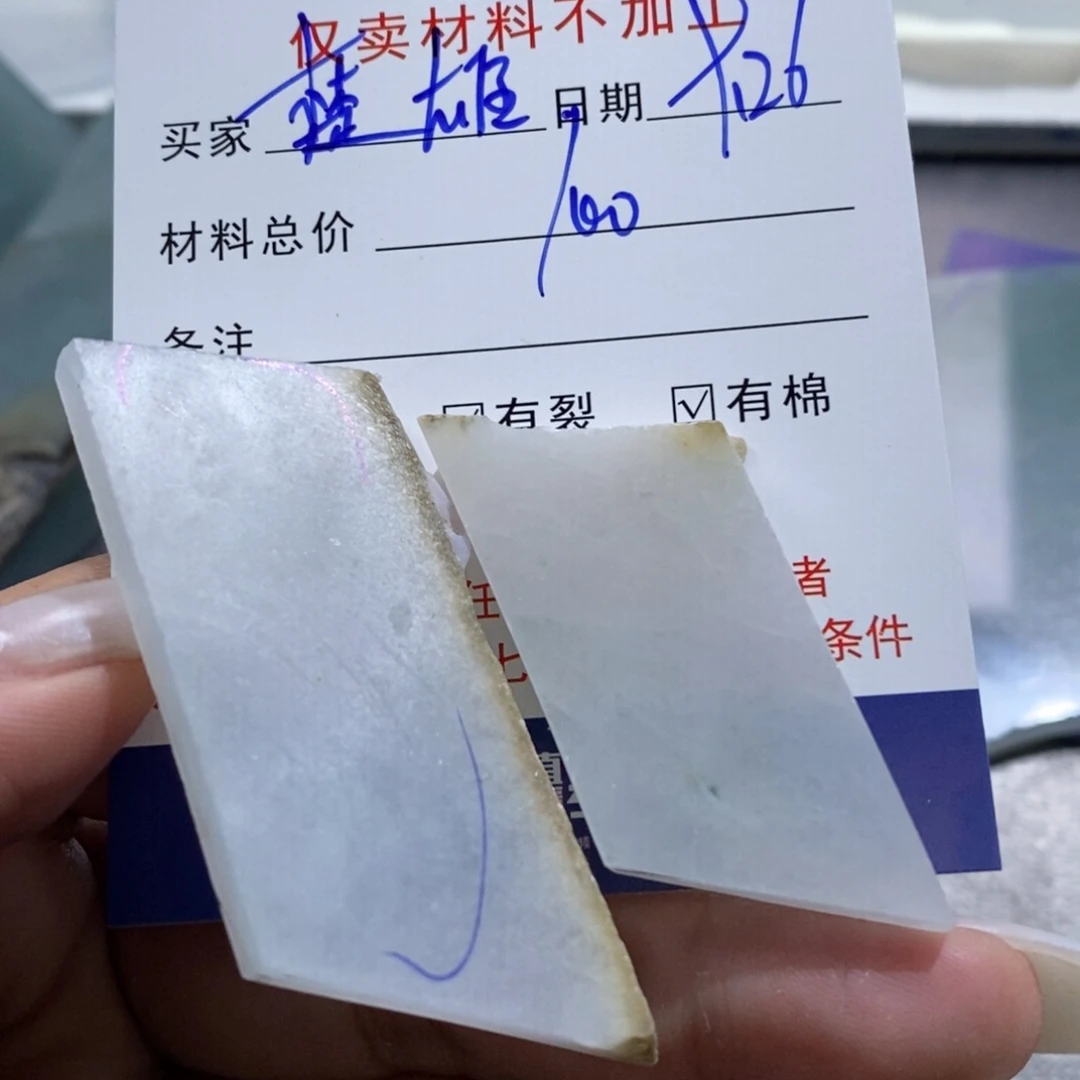 仅卖材料不加工
买家 雄 日期 126
材料总价 100
备注
有裂 有棉
任 者
七 条件
值